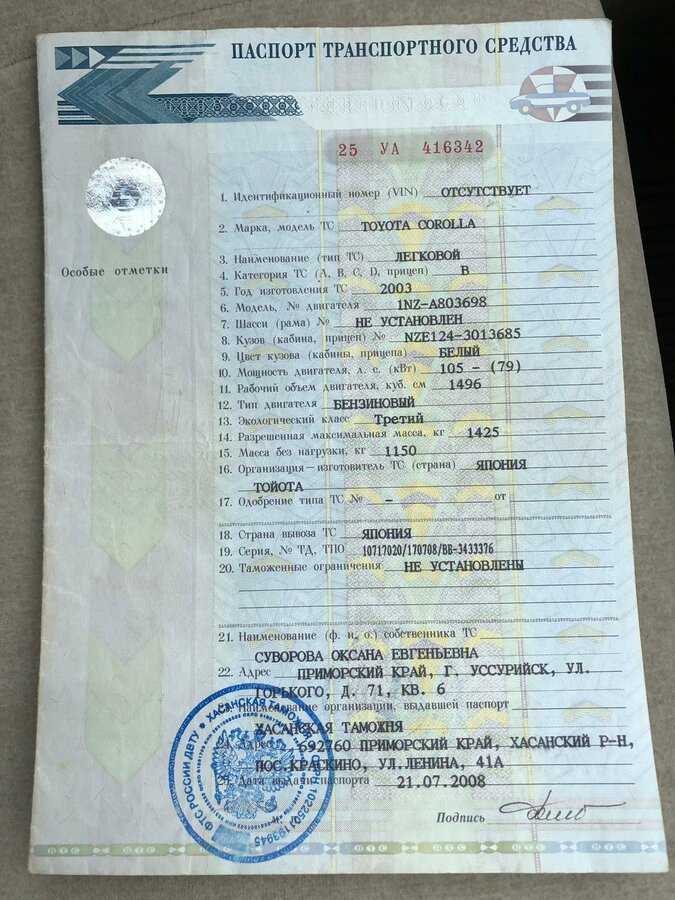 ПАСПОРТ ТРАНСПОРТНОГО СРЕДСТВА
25 УА 416342
Особые отметки
1. Идентификационный номер (VIN) ОТСУТСТВУЕТ
2. Марка, модель ТС TOYOTA COROLLA
3. Наименование (тип ТС) ЛЕГКОВОЙ
4. Категория ТС (A, B, C, D, прицеп) B
5. Год изготовления ТС 2003
6. Модель, № двигателя 1NZ-A803698
7. Шасси (рама) № НЕ УСТАНОВЛЕН
8. Кузов (кабина, прицеп) № NZE124-3013685
9. Цвет кузова (кабины, прицепа) БЕЛЫЙ
10. Мощность двигателя, л. с. (кВт) 105 - (79)
11. Рабочий объем двигателя, куб. см 1496
12. Тип двигателя БЕНЗИНОВЫЙ
13. Экологический класс Третий
14. Разрешенная максимальная масса, кг 1425
15. Масса без нагрузки, кг 1150
16. Организация-изготовитель ТС (страна) ЯПОНИЯ
ТОЙОТА
17. Одобрение типа ТС № - от
18. Страна вывоза ТС ЯПОНИЯ
19. Серия, № ТД, ТПО 10717020/170708/ВВ-3433376
20. Таможенные ограничения НЕ УСТАНОВЛЕНЫ
21. Наименование (ф. и. о.) собственника ТС
СУВОРОВА ОКСАНА ЕВГЕНЬЕВНА
22. Адрес ПРИМОРСКИЙ КРАЙ, Г. УССУРИЙСК, УЛ.
ГОРЬКОГО, Д. 71, КВ. 6
23. Наименование организации, выдавшей паспорт
ХАСАНСКАЯ ТАМОЖНЯ
24. Адрес 692760 ПРИМОРСКИЙ КРАЙ, ХАСАНСКИЙ Р-Н,
ПОС.КРАСКИНО, УЛ.ЛЕНИНА, 41А
25. Дата выдачи паспорта 21.07.2008
Подпись
ФТС РОССИИ ДВТУ * ХАСАНСКАЯ ТАМОЖНЯ